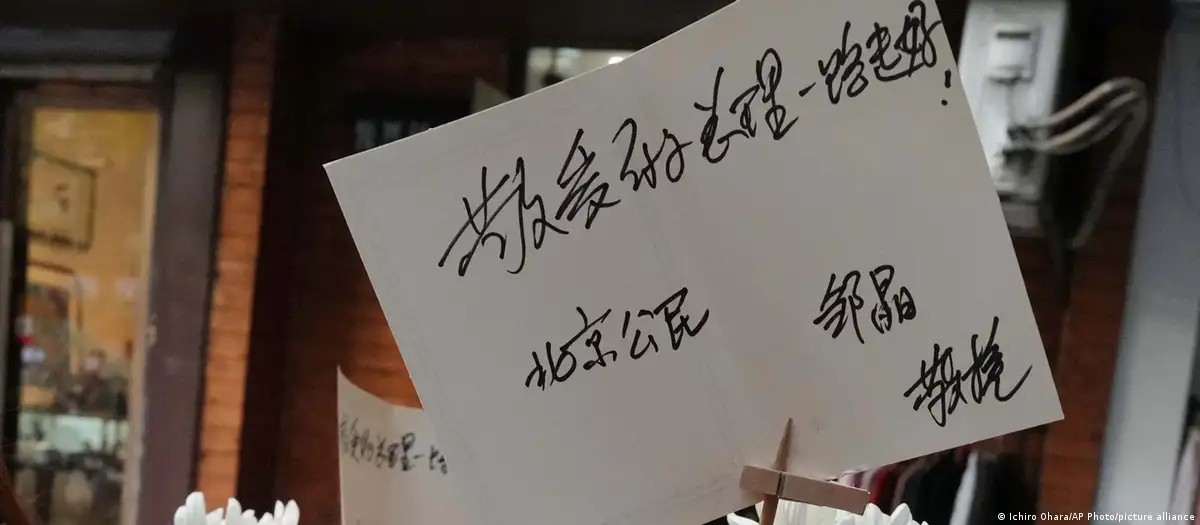 敬爱的总理一路走好!
北京公民 邹晶
敬挽
爱的总理一路
© Ichiro Ohara/AP Photo/picture alliance